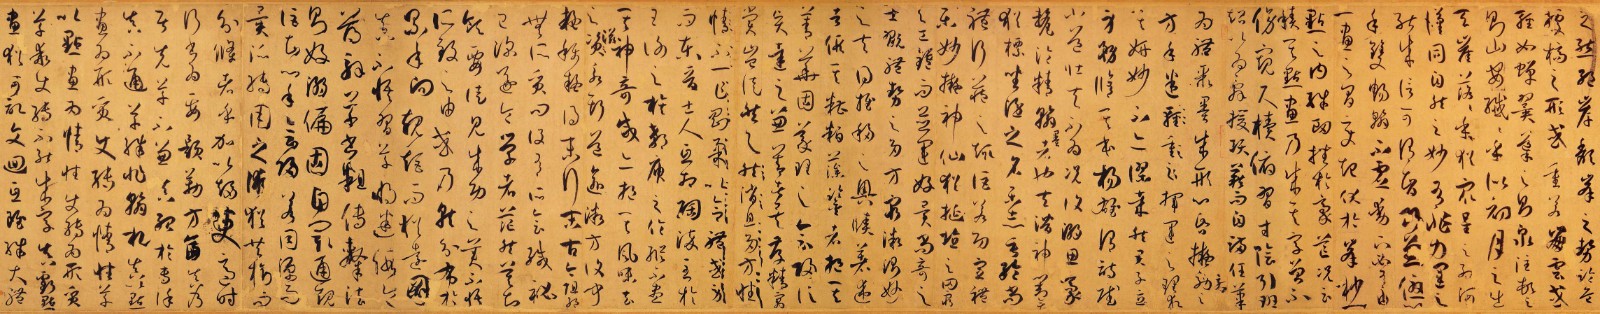 之態絕岸頹峯之勢臨危
據槁之形或重若崩雲或
輕如蟬翼導之則泉注頓之
則山安纖纖乎似初月之出
天崖落落乎猶眾星之列河
漢同自然之妙有非力運之
能成信可謂智巧兼優心
手雙暢翰不虛動下必有由
一畫之間變起伏於峯杪
一點之內殊衄挫於豪芒況云
積其點畫乃成其字曾不
傍窺尺櫝俯習寸陰引班
超以為辭援項籍而自滿任筆
為體聚墨成形心昏擬效之
方手迷揮運之理求
其妍妙不亦謬哉然君子立
身務修其本楊雄謂詩賦
小道壯夫不為況復溺思豪
氂淪精翰墨者也夫潛神對弈
猶標坐隱之名樂志垂綸尚
體行藏之趣詎若功宣禮
樂妙擬神仙猶埏埴之罔窮
與工鑪而並運好異尚奇之
士翫體勢之多方窮微測妙
之夫得推移之奧賾著述
者假其糟粕藻鑒者挹其
菁華固義理之會歸信
賢達之兼善者矣存精寓
賞豈徒然與消息多方性
情不一乍剛柔以合體忽
而東晉士人互相陶淬至於
王謝之族郗庾之倫縱不盡
其神奇咸亦挹其風味去
之滋永斯道愈微方復聞
疑稱疑得末行末古今阻絕
無所質問設有所會緘秘
已深遂令學者茫然莫知
領要徒見成功之美不悟
所致之由或乃就分布於
累年向規矩而猶遠圖
真不悟習草將迷假令
薄解草書粗傳隸法
則好溺偏固自閡通規
詎知心手會歸若同源而
異派轉用之術猶共樹而
分條者乎加以趨變適時
行書為要題勒方畐真乃
居先草不兼真殆於專謹
真不通草殊非翰札真以點
畫為形質使轉為情性草
以點畫為情性使轉為形質
草乖使轉不能成字真虧點
畫猶可記文迴互雖殊大體